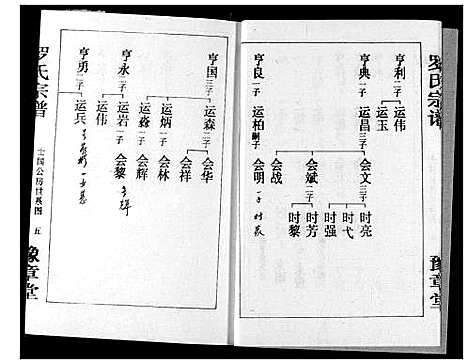 罗氏宗谱
豫章堂
亨利 二子 运伟
运玉
亨典 一子 运昌 三子 会文 三子 时亮
时弋
时强
会斌 二子 时芳
时黎
会战
亨良 一子 运柏 嗣子 会明
亨国 三子 运森 二子 会华
会祥
运炳 一子 会林
运淼 一子 会辉
亨永 二子 运岩 一子 会黎
运伟
亨勇 一子 运兵
罗氏宗谱
士国公房世系图 五
豫章堂